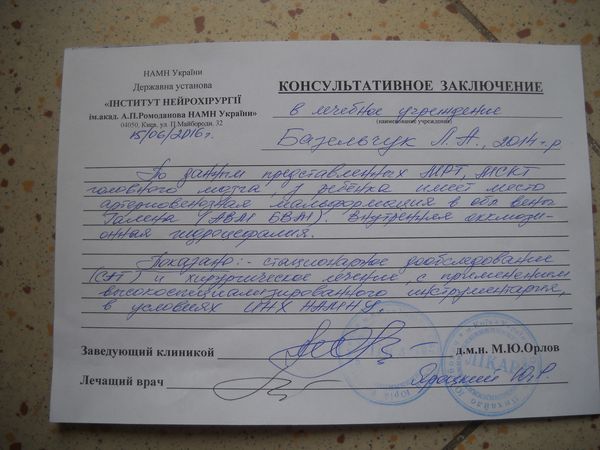 НАМН України
Державна установа
«ІНСТИТУТ НЕЙРОХІРУРГІЇ
ім.акад. А.П.Ромоданова НАМН України»
04050, Київ, ул. П.Майбороди, 32
15/06/2016г.
КОНСУЛЬТАТИВНОЕ ЗАКЛЮЧЕНИЕ
в лечебное учреждение
(наименование учреждения)
Базельчук Л.А., 2014 г.р.
По данным представленных МРТ, МСКТ
головного мозга у ребёнка имеет место
артериовенозная мальформация в обл вены
Галена (АВМ БВМ). Внутренняя окклюзи-
онная гидроцефалия.
Показано: - стационарное дообследование
(САГ) и хирургическое лечение с применением
высокоспециализированного инструментария,
в условиях ИНХ НАМНУ.
Заведующий клиникой
д.м.н. М.Ю.Орлов
Лечащий врач
Яроцкий Ю.Р.